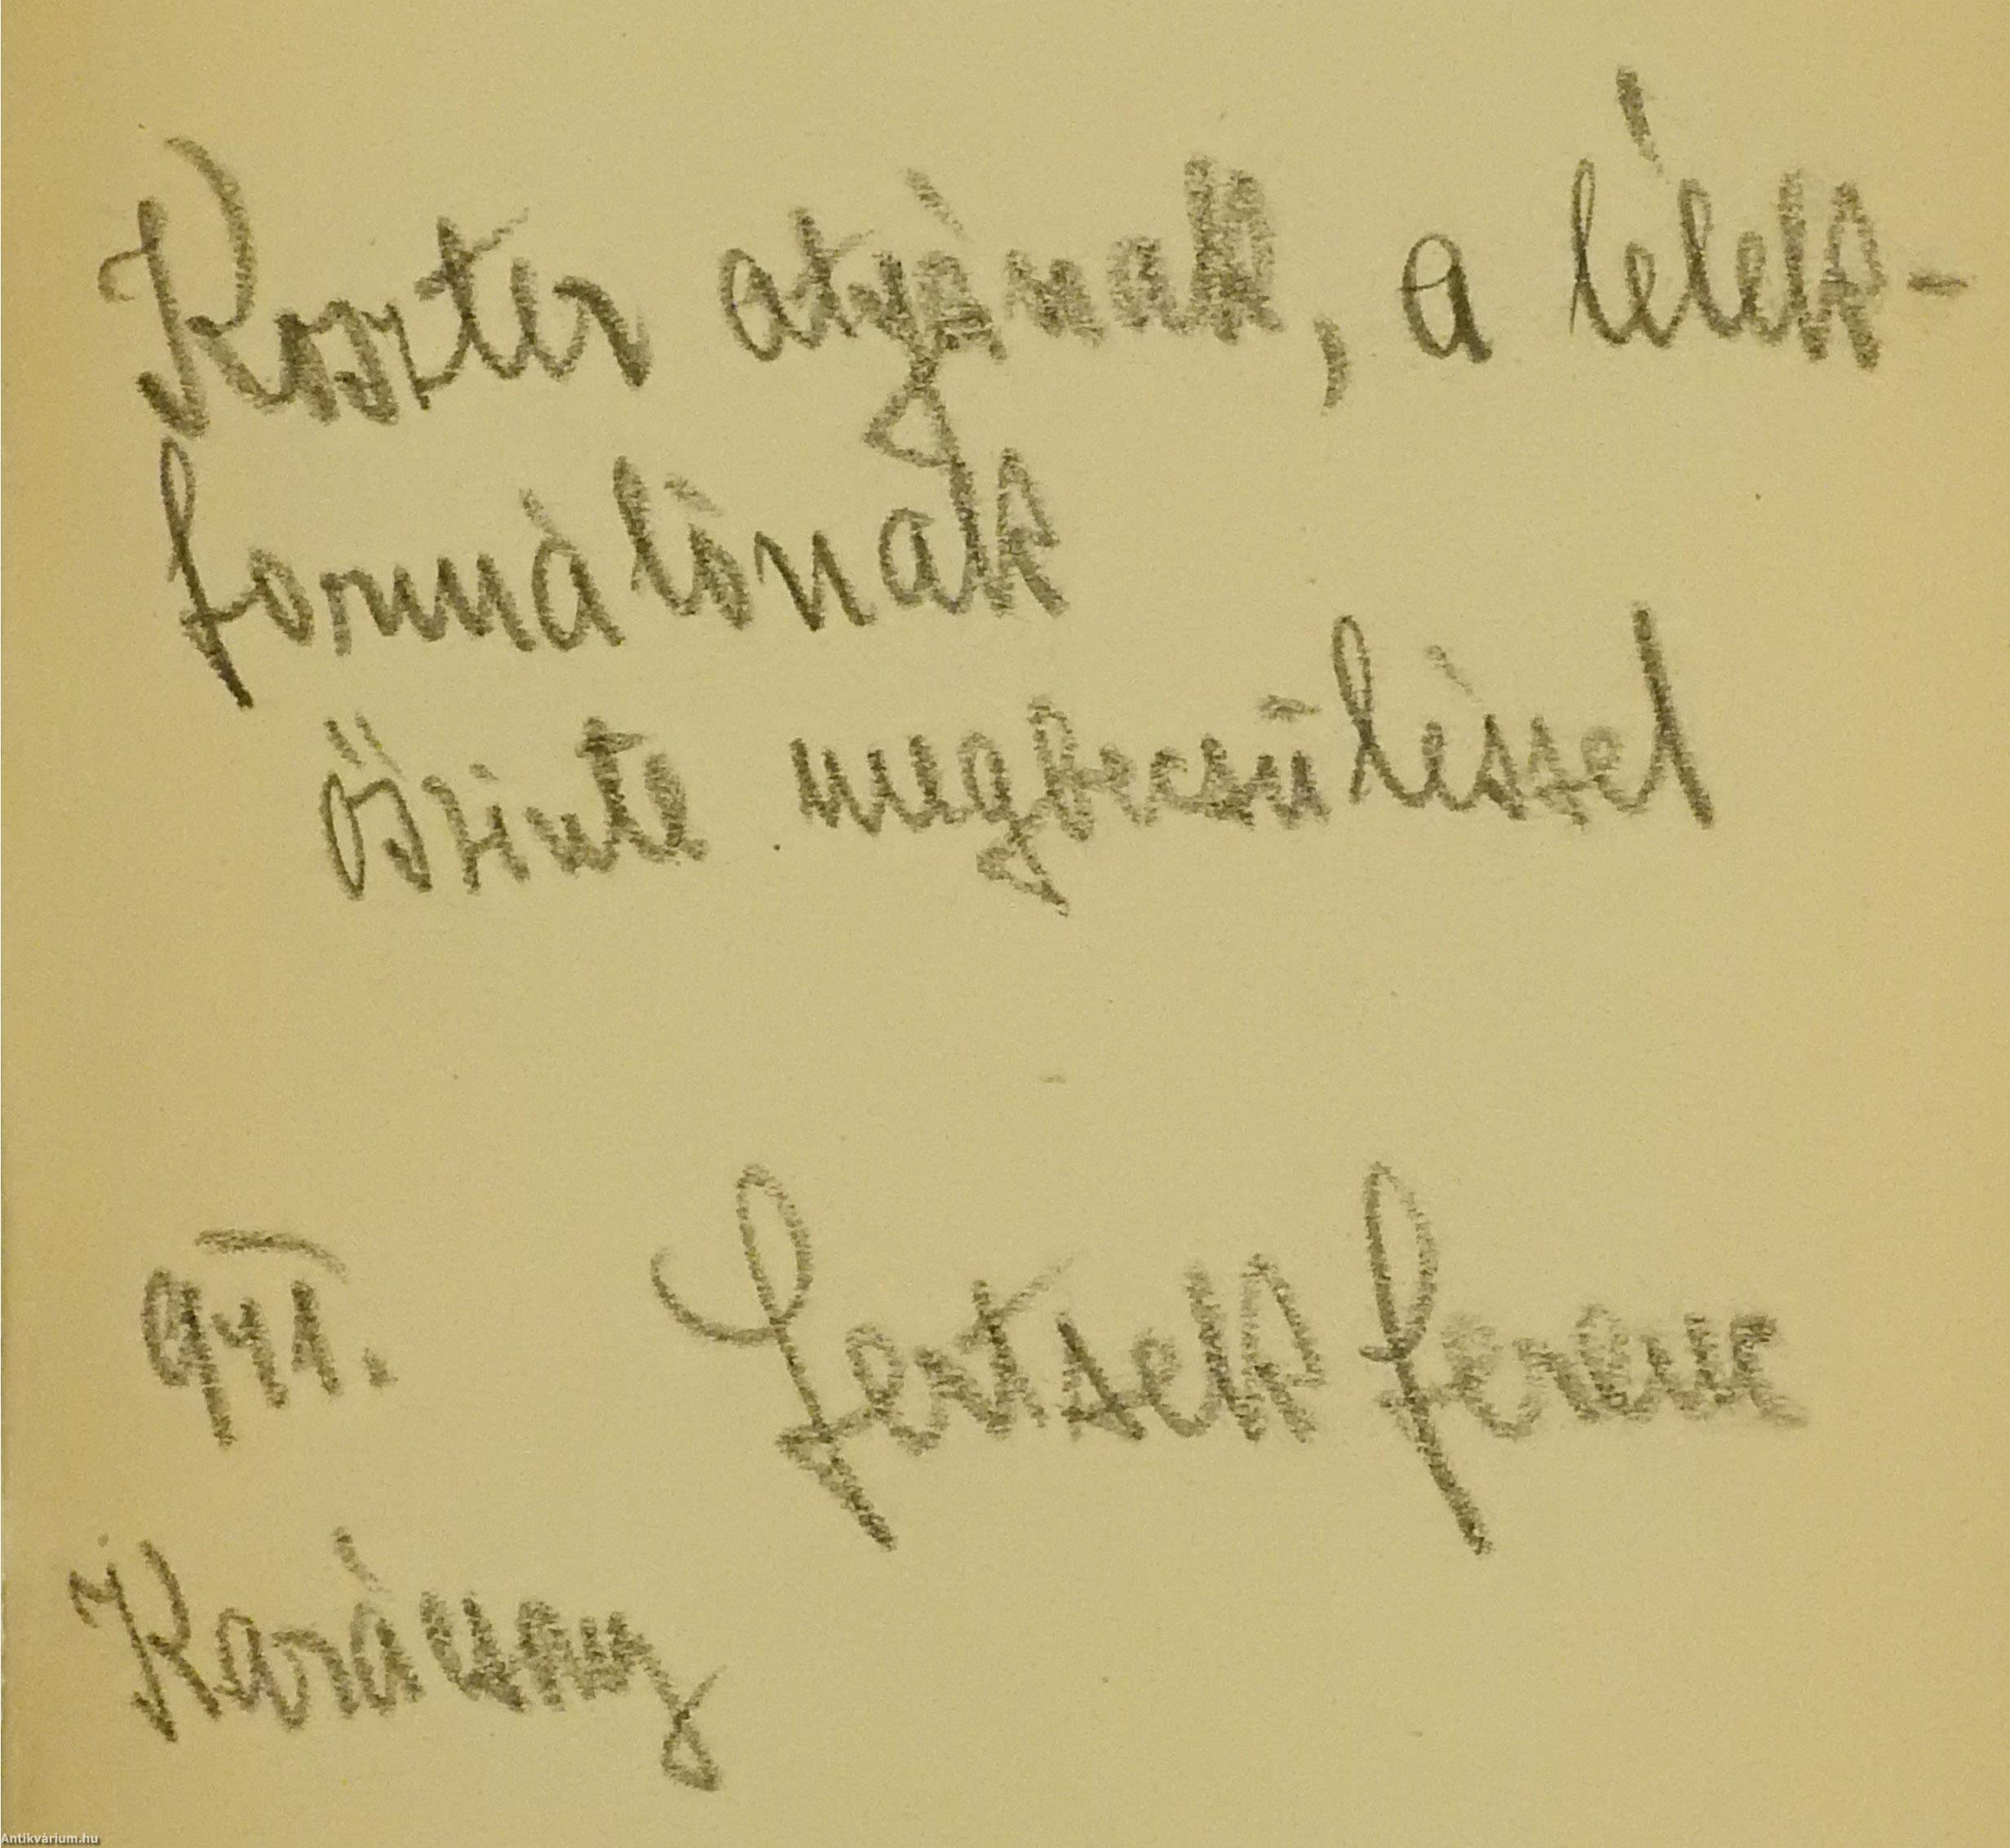 Koszter atyának, a lélek-
formálónak
őszinte megbecsüléssel
941. Fertsek Ferenc
Karácsony
Antikvárium.hu